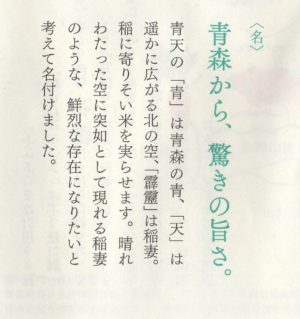 〈名〉
青森から、驚きの旨さ。
青天の「青」は青森の青、「天」は
遥かに広がる北の空、「霹靂」は稲妻。
稲に寄りそい米を実らせます。晴れ
わたった空に突如として現れる稲妻
のような、鮮烈な存在になりたいと
考えて名付けました。